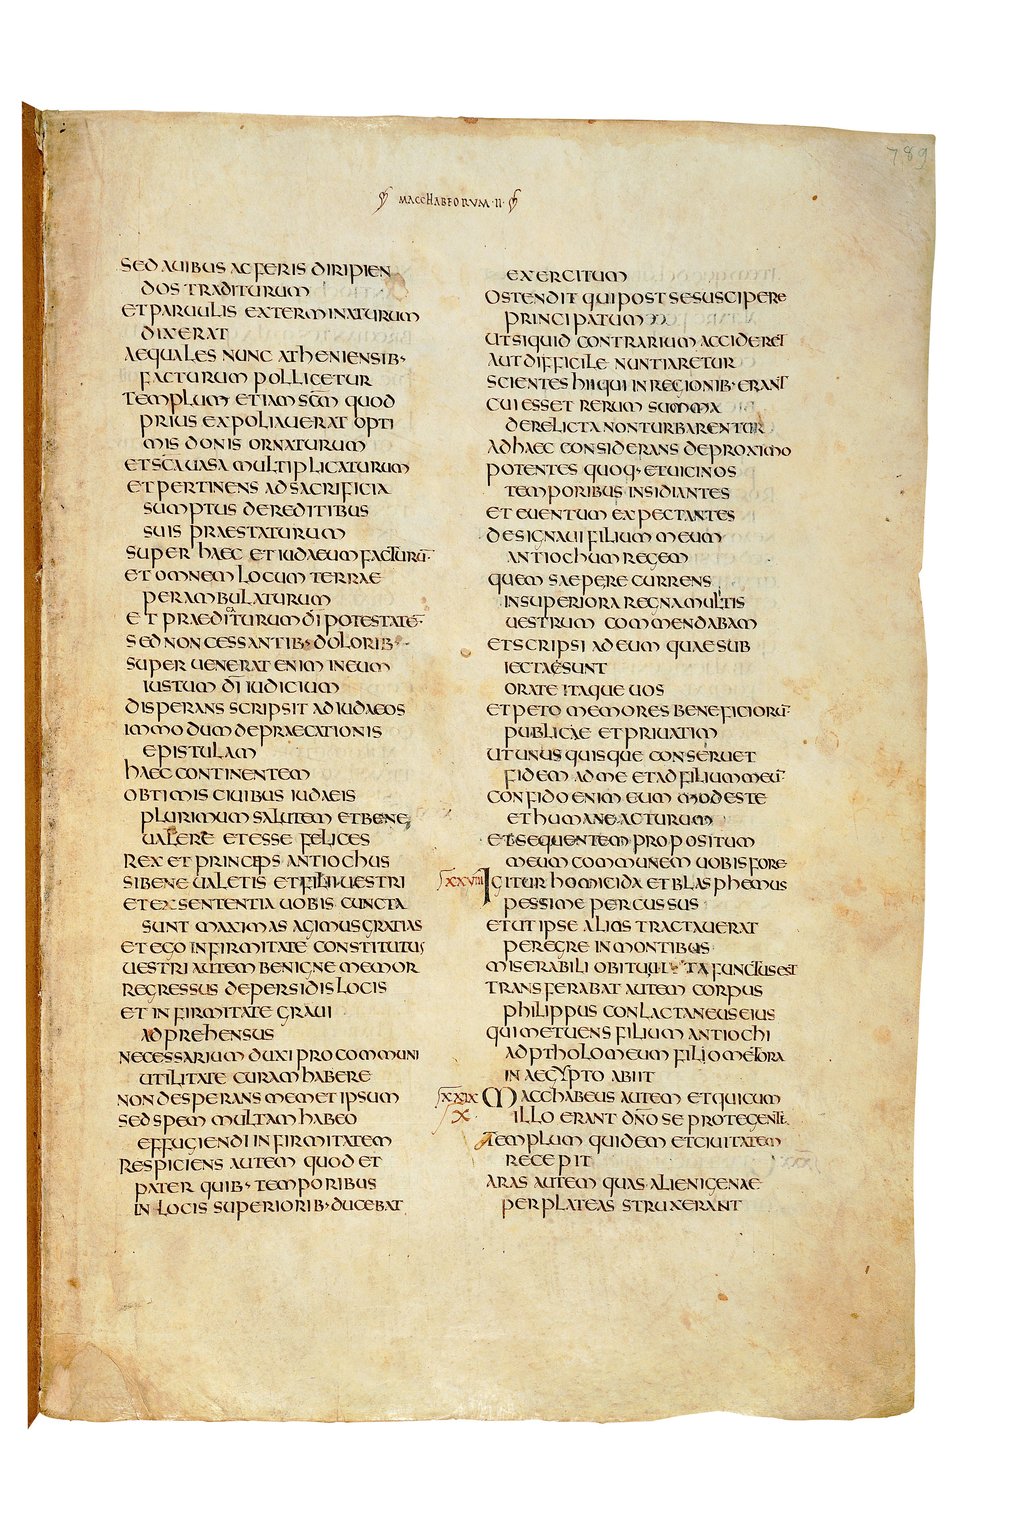 789
MACCHABEORUM·II·
SED AUIBUS AC FERIS DIRIPIEN
DOS TRADITURUM
ET PARUULIS EXTERMINATURUM
DIXERAT
AEQUALES NUNC ATHENIENSIB·
FACTURUM POLLICETUR
TEMPLUM ETIAM SC̄M QUOD
PRIUS EXPOLIAUERAT OPTI
MIS DONIS ORNATURUM
ET SC̄A UASA MULTIPLICATURUM
ET PERTINENS AD SACRIFICIA
SUMPTUS DE REDITIBUS
SUIS PRAESTATURUM
SUPER HAEC ET IUDAEUM FACTURŪ
ET OMNEM LOCUM TERRAE
PERAMBULATURUM
ET PRAEDITURUM DĪ POTESTATĒ
SED NON CESSANTIB· DOLORIB·
SUPERUENERAT ENIM IN EUM
IUSTUM DĪ IUDICIUM
DISPERANS SCRIPSIT AD IUDAEOS
IN MODUM DEPRAECATIONIS
EPISTULAM
HAEC CONTINENTEM
OBTIMIS CIUIBUS IUDAEIS
PLURIMUM SALUTEM ET BENE
UALERE ET ESSE FELICES
REX ET PRINCEPS ANTIOCHUS
SI BENE UALETIS ET FILII UESTRI
ET EX SENTENTIA UOBIS CUNCTA
SUNT MAXIMAS AGIMUS GRATIAS
ET EGO INFIRMITATE CONSTITUTUS
UESTRI AUTEM BENIGNE MEMOR
REGRESSUS DE PERSIDIS LOCIS
ET INFIRMITATE GRAUI
ADPREHENSUS
NECESSARIUM DUXI PRO COMMUNI
UTILITATE CURAM HABERE
NON DESPERANS MEMET IPSUM
SED SPEM MULTAM HABEO
EFFUGIENDI INFIRMITATEM
RESPICIENS AUTEM QUOD ET
PATER QUIB· TEMPORIBUS
IN LOCIS SUPERIORIB· DUCEBAT
EXERCITUM
OSTENDIT QUI POST SE SUSCIPERE
PRINCIPATUM
UT SI QUID CONTRARIUM ACCIDERET
AUT DIFFICILE NUNTIARETUR
SCIENTES HII QUI IN REGIONIB· ERANT
CUI ESSET RERUM SUMMA
DERELICTA NON TURBARENTUR
AD HAEC CONSIDERANS DE PROXIMO
POTENTES QUOQ· ET UICINOS
TEMPORIBUS INSIDIANTES
ET EUENTUM EXPECTANTES
DESIGNAUI FILIUM MEUM
ANTIOCHUM REGEM
QUEM SAEPE RECURRENS
IN SUPERIORA REGNA MULTIS
UESTRUM COMMENDABAM
ET SCRIPSI AD EUM QUAE SUB
IECTA SUNT
ORATE ITAQUE UOS
ET PETO MEMORES BENEFICIORŪ
PUBLICAE ET PRIUATIM
UT UNUSQUISQUE CONSERUET
FIDEM AD ME ET AD FILIUM MEŪ
CONFIDO ENIM EUM MODESTE
ET HUMANE ACTURUM
ET SEQUENTEM PROPOSITUM
MEUM COMMUNEM UOBIS FORE
XXVIII IGITUR HOMICIDA ET BLASPHEMUS
PESSIME PERCUSSUS
ET UT IPSE ALIOS TRACTAUERAT
PEREGRE IN MONTIBUS
MISERABILI OBITU UITA FUNCTUS EST
TRANSFERABAT AUTEM CORPUS
PHILIPPUS CONLACTANEUS EIUS
QUI METUENS FILIUM ANTIOCHI
AD PTHOLOMEUM FILIOMETORA
IN AEGYPTO ABIIT
XXIX MACCHABEUS AUTEM ET QUI CUM
X ILLO ERANT DN̄O SE PROTEGENTE
TEMPLUM QUIDEM ET CIUITATEM
RECEPIT
ARAS AUTEM QUAS ALIENIGENAE
PER PLATEAS STRUXERANT